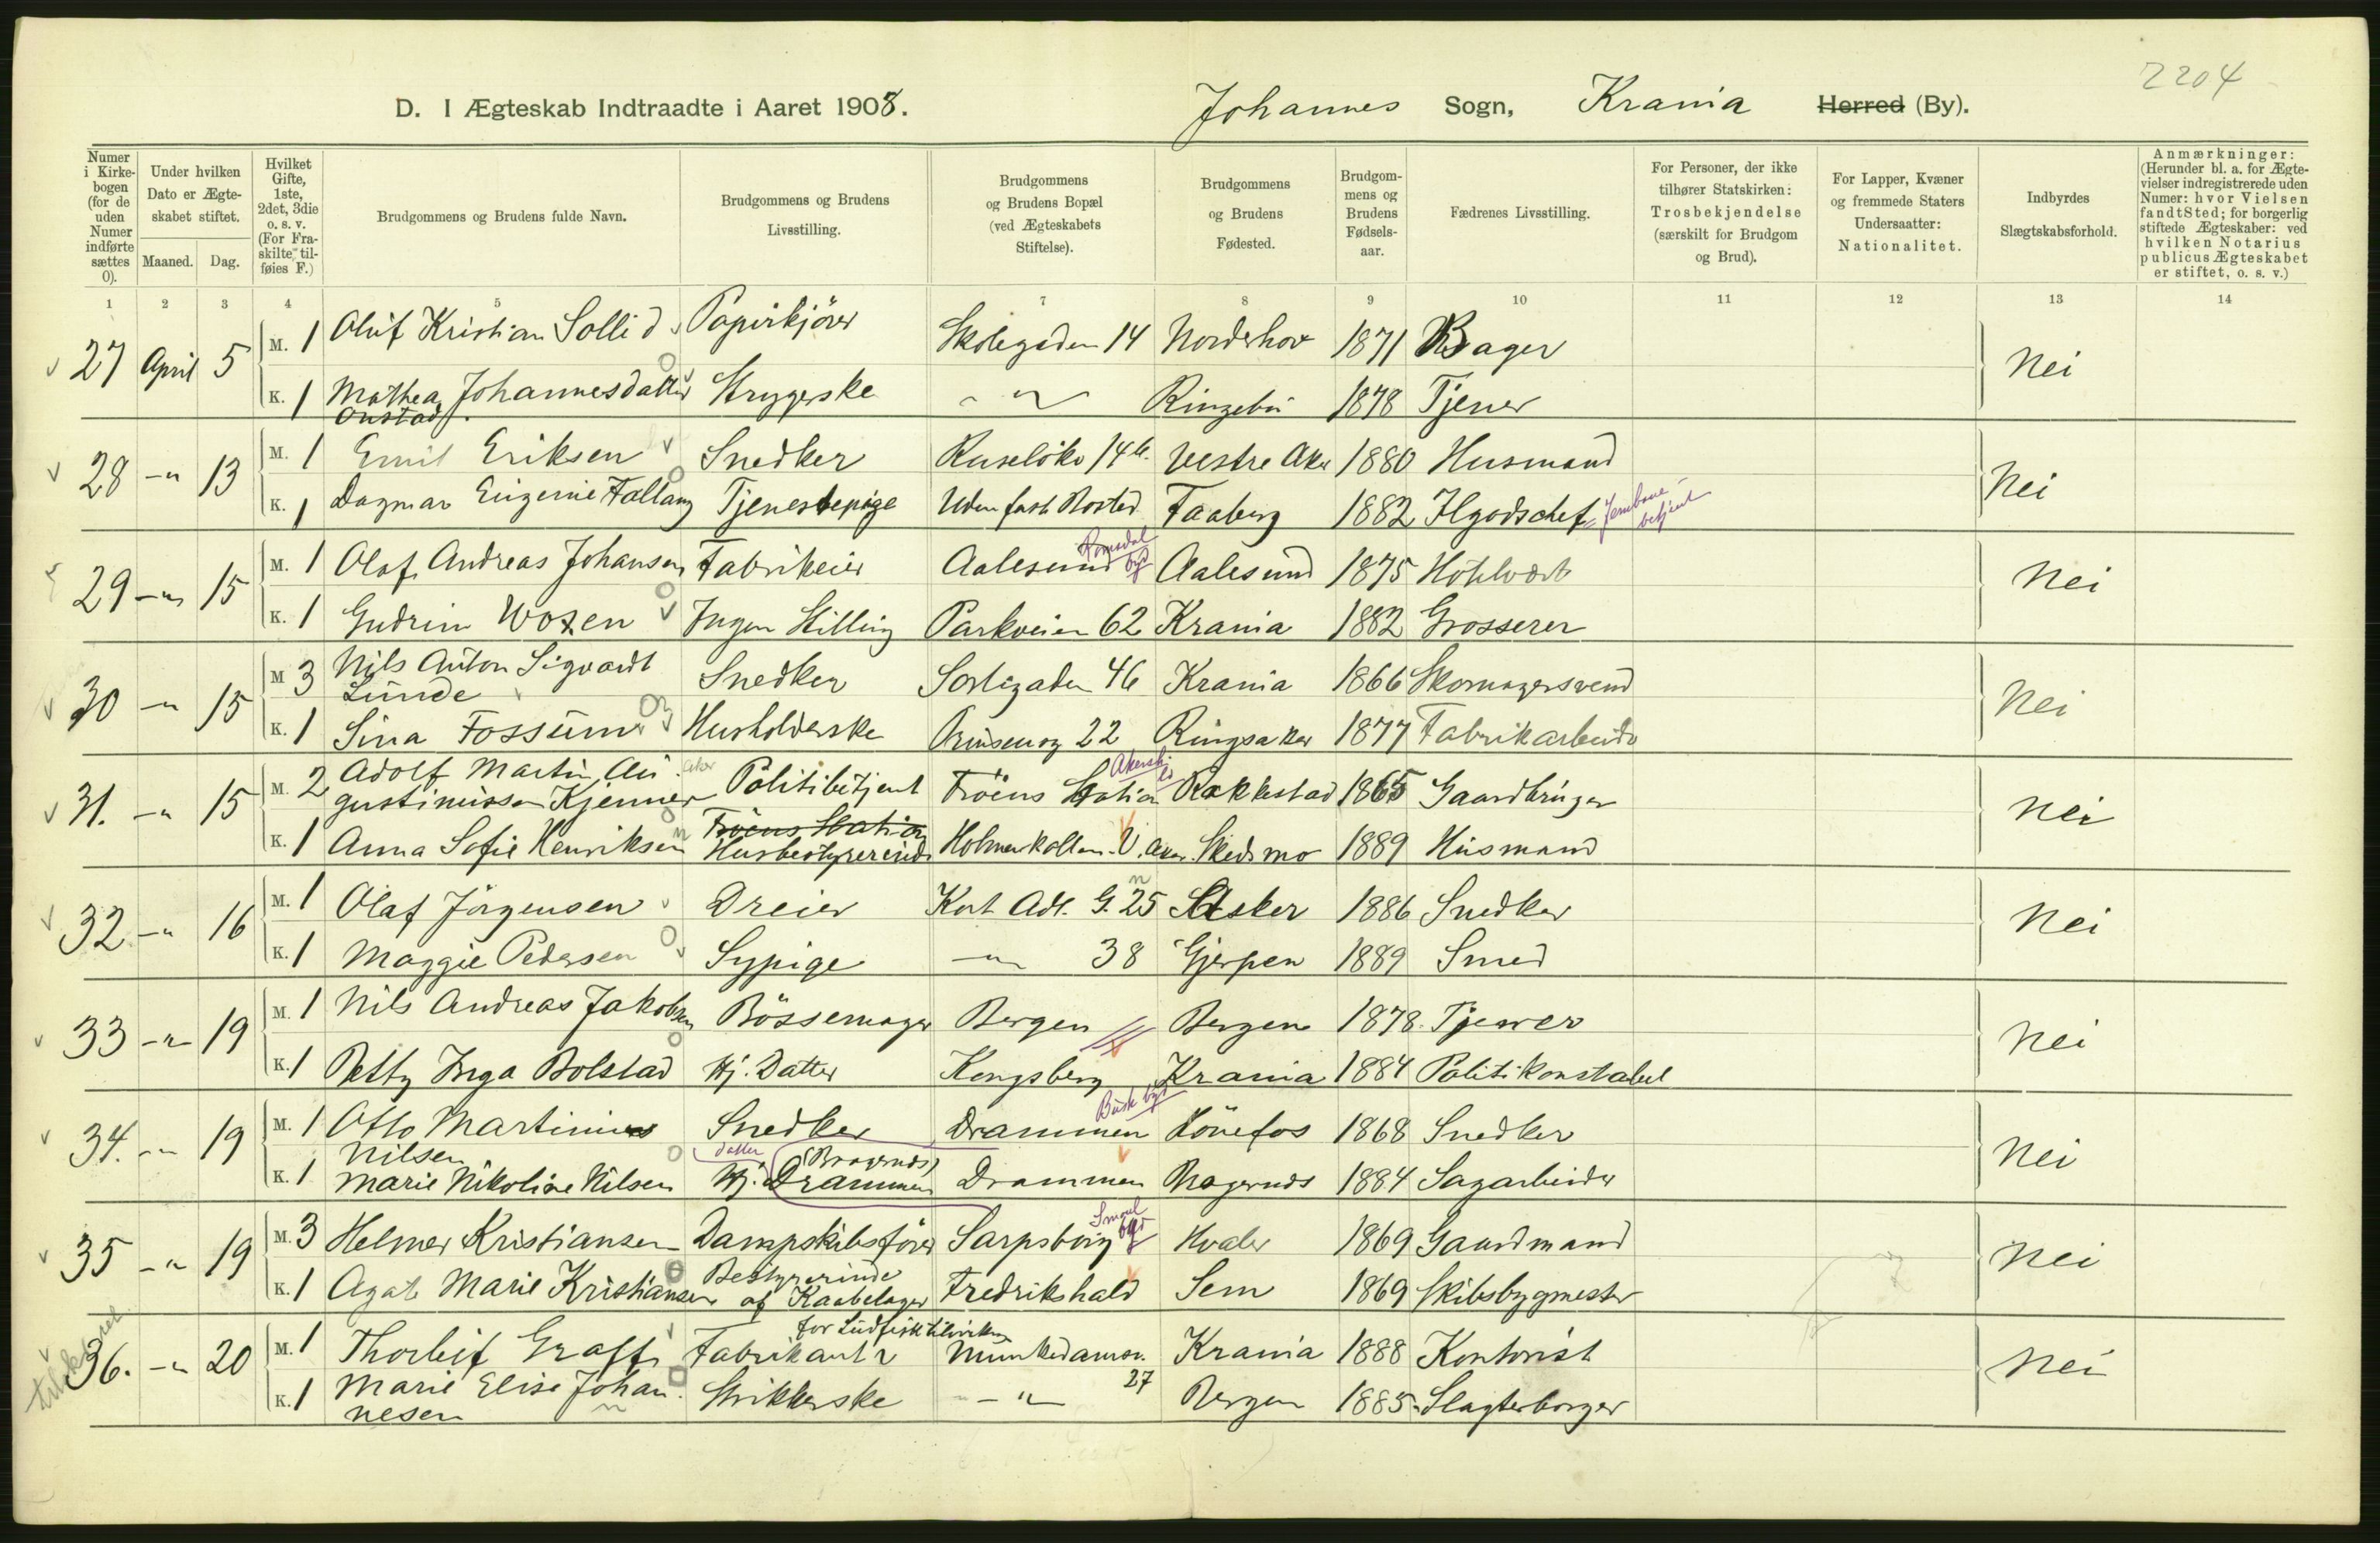 2204
D. I Ægteskab Indtraadte i Aaret 1908. Johannes Sogn, Krania Herred (By).
Numer i Kirkebogen (for de uden Numer indførte sættes 0).
Under hvilken Dato er Ægteskabet stiftet.
Maaned. Dag.
Hvilket Gifte, 1ste, 2det, 3die o. s. v. (For Fraskilte tilføies F.)
Brudgommens og Brudens fulde Navn.
Brudgommens og Brudens Livsstilling.
Brudgommens og Brudens Bopæl (ved Ægteskabets Stiftelse).
Brudgommens og Brudens Fødested.
Brudgommens og Brudens Fødselsaar.
Fædrenes Livsstilling.
For Personer, der ikke tilhører Statskirken: Trosbekjendelse (særskilt for Brudgom og Brud).
For Lapper, Kvæner og fremmede Staters Undersaatter: Nationalitet.
Indbyrdes Slægtskabsforhold.
Anmærkninger: (Herunder bl. a. for Ægtevielser indregistrerede uden Numer: hvor Vielsen fandt Sted; for borgerlig stiftede Ægteskaber: ved hvilken Notarius publicus Ægteskabet er stiftet, o. s. v.)
1 2 3 4 5 7 8 9 10 11 12 13 14
27 April 5 M. 1 Oluf Kristian Sollid Papirkjører Skolegaden 14 Norderhov 1871 Bager Nei
K. 1 Mathea Johannesdatter Onstad. Strygerske - " - Ringebu 1878 Tjener
28 - " 13 M. 1 Emil Eriksen Snedker Ruseløkv 14 b. Vestre Aker 1880 Husmand Nei
K. 1 Dagmar Eugenie Fallang Tjenestepige Uden fast Bosted Faaberg 1882 Ilgodschef = Jernbanebetjent
29 - " 15 M. 1 Olaf Andreas Johansen Fabrikeier Aalesund Romsdal byd Aalesund 1875 Hotelvært Nei
K. 1 Gudrun Woxen Ingen Stilling Parkveien 62 Krania 1882 Grosserer
30 - " 15 M 3 Nils Anton Sigvardt Lunde Snedker Sorligaden 46 Krania 1866 Skomagersvend Nei
K. 1 Sina Fossum Husholderske Prinsens g 22 Ringsaker 1877 Fabrikarbeider
31. - " 15 M. 2 Adolf Martin Augustinussen Kjenner Aker Politibetjent Frøens Station Akersh. Rakkestad 1865 Gaardbruger Nei
K. 1 Anna Sofie Henriksen Frøens Station Husbestyrerinde Holmenkollen. V. Aker. Skedsmo 1889 Husmand
32 - " 16 M. 1 Olaf Jørgensen Dreier Kort Adl. G. 25 Asker 1886 Snedker Nei
K. 1 Maggie Pedersen Sypige - " 38 Gjerpen 1889 Smed
33 - " 19 M. 1 Nils Andreas Jakobsen Bøssemager Bergen Bergen 1878. Tjener Nei
K. 1 Betty Inga Bolstad Hj. Datter Kongsberg Krania 1884 Politikonstabel
34. - " 19 M. 1 Otto Martinius Nilsen Snedker Drammen Busk byd Hønefos 1868 Snedker Nei
K. 1 Marie Nikoline Nilsen Hj. datter (Bragernes) Drammen Drammen Bragernes 1884 Sagarbeider
35 - " 19 M. 3 Helmer Kristiansen Dampskibsfører Sarpsborg Smaal byd Hvaler 1869 Gaardmand Nei
K. 1 Agate Marie Kristiansen Bestyrerinde af Kaabelager Fredrikshald Sem 1869 Skibsbygmester
36. - " 20 M. 1 Thorleif Graff Fabrikant for Ludfisktilvirkn Munkedamsv. 27 Krania 1888 Kontorist Nei
K. 1 Marie Elise Johannesen Strikkerske - " - Bergen 1885. Slagterborger